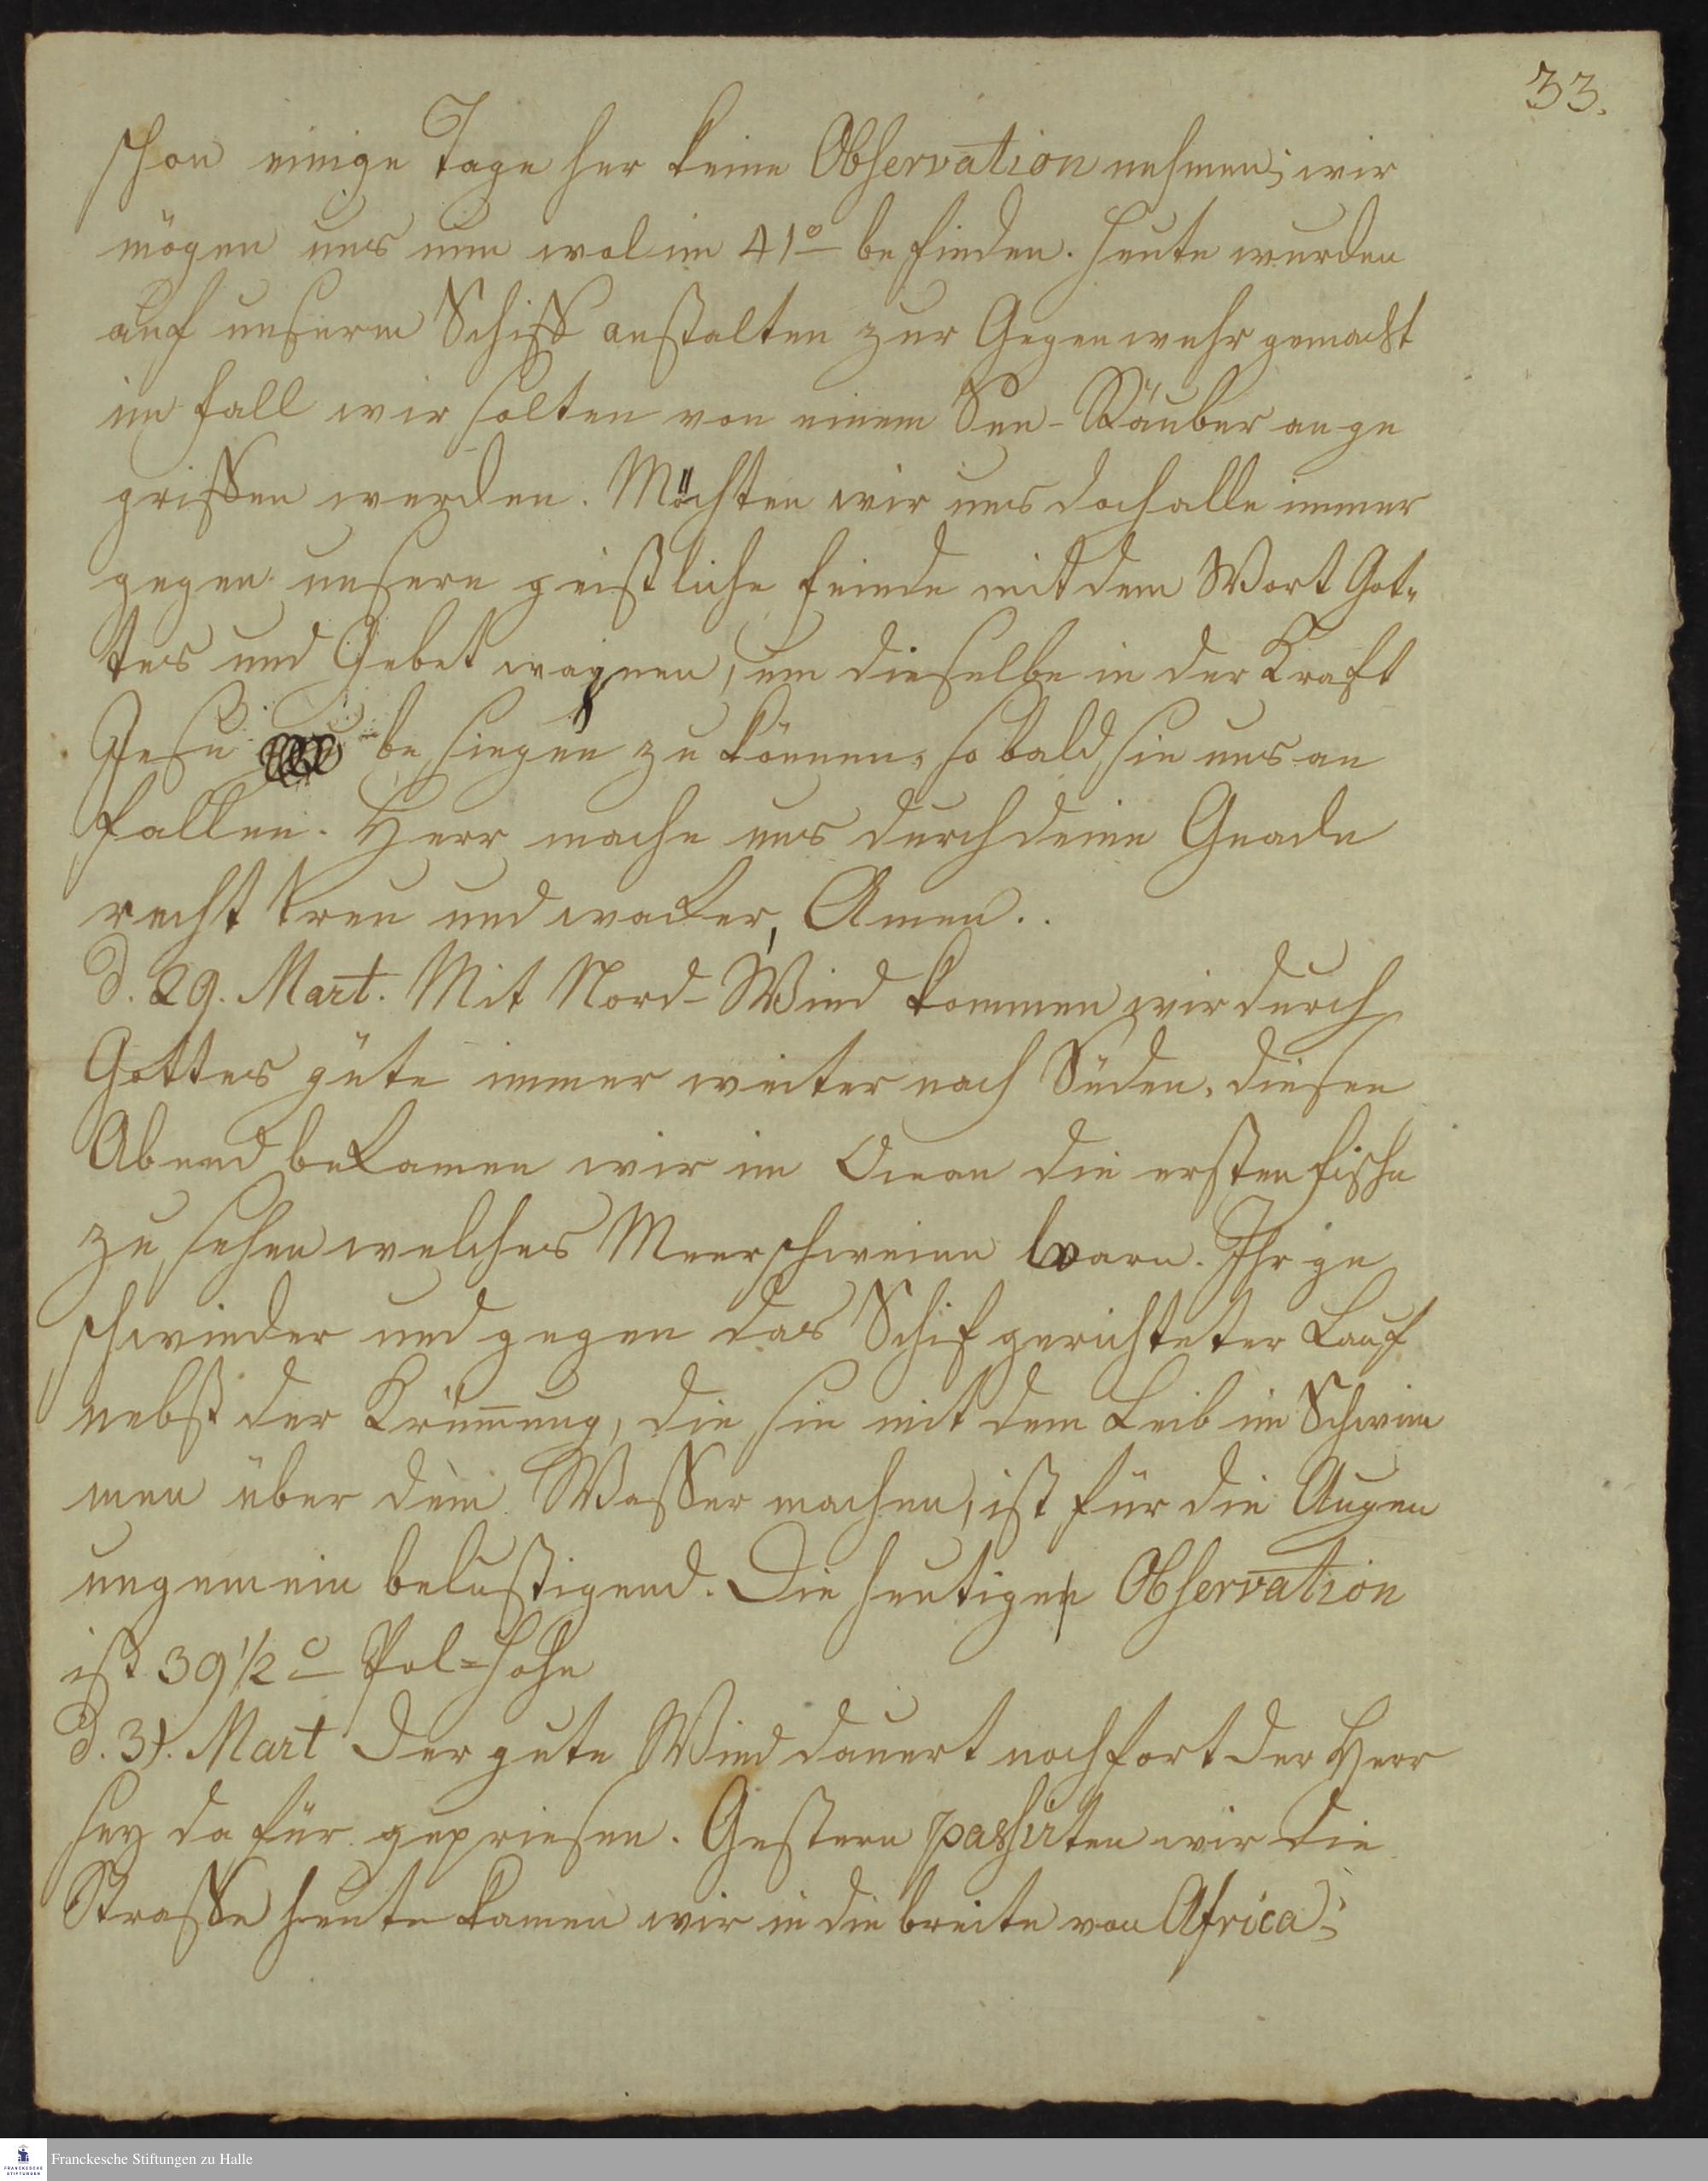 33.
schon einige Tage her keine Observation nehmen; wir
mögen uns nun wol im 41° befinden. Heute wurden
auf unserm Schiff anstalten zur Gegenwehr gemacht
im fall wir solten von einem See-Räuber ange
griffen werden. Möchten wir uns doch alle immer
gegen unsere geistliche feinde mit dem Wort Got-
tes und Gebet wapnen, um dieselbe in der Kraft
Jesu besiegen zu können, so bald sie uns an
fallen. Herr mache uns durch deine Gnade
recht treu und wacker, Amen..
d. 29. Mart. Mit Nord-Wind kommen wir durch
Gottes güte immer weiter nach Süden, diesen
Abend bekamen wir im Ocean die ersten fische
zu sehen welches Meerschweine warn. Ihr ge
schwinder und gegen das Schif gerichteter Lauf
nebst der Krüm̅ung, die sie mit dem Leib im Schwim
men über dem Wasser machen, ist für die Augen
ungemein belustigend. Die heutige Observation
ist 39 1/2° Pol=Höhe
d. 31. Mart Der gute Wind dauert noch fort der Herr
sey dafür gepriesen. Gestern passirten wir die
Strasse heute kamen wir in die breite von Africa;
Franckesche Stiftungen zu Halle
FRANCKESCHE STIFTUNGEN